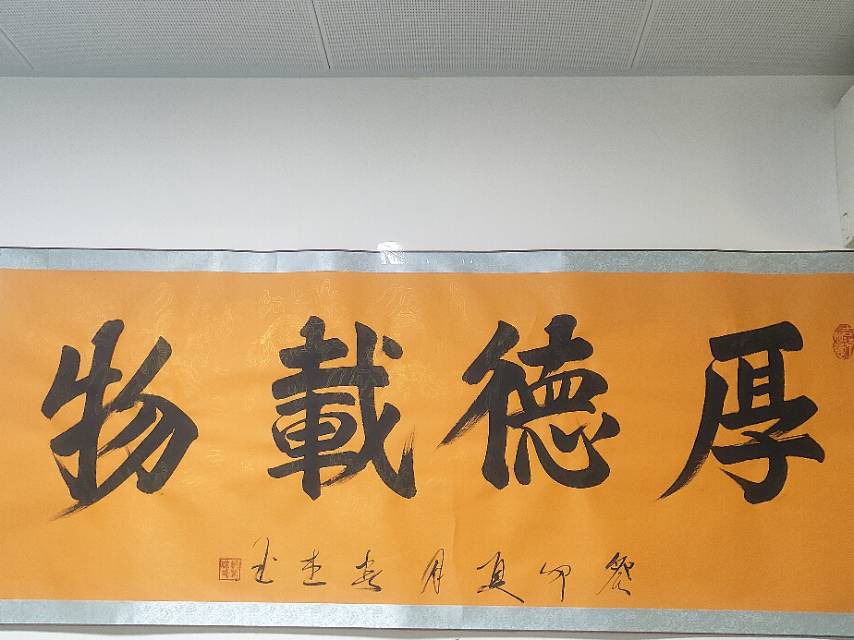 厚德載物
癸卯夏月